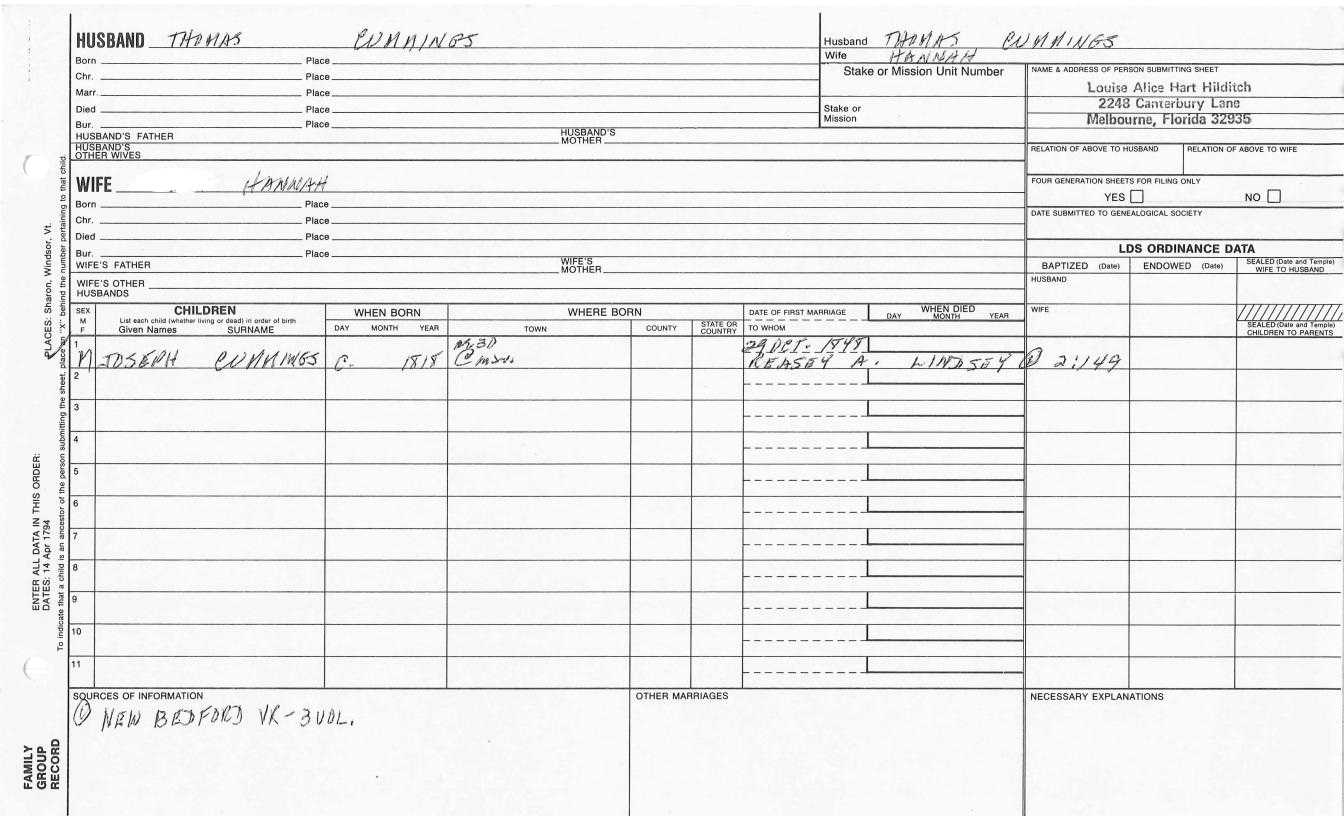 HUSBAND THOMAS CUMMINGS
Born Place
Chr. Place
Marr. Place
Died Place
Bur. Place
HUSBAND'S FATHER HUSBAND'S MOTHER
HUSBAND'S OTHER WIVES
Husband THOMAS CUMMINGS
Wife HANNAH
Stake or Mission Unit Number
Stake or Mission
NAME & ADDRESS OF PERSON SUBMITTING SHEET
Louise Alice Hart Hilditch
2248 Canterbury Lane
Melbourne, Florida 32935
RELATION OF ABOVE TO HUSBAND RELATION OF ABOVE TO WIFE
FOUR GENERATION SHEETS FOR FILING ONLY
YES NO
DATE SUBMITTED TO GENEALOGICAL SOCIETY
WIFE HANNAH
Born Place
Chr. Place
Died Place
Bur. Place
WIFE'S FATHER WIFE'S MOTHER
WIFE'S OTHER HUSBANDS
LDS ORDINANCE DATA
BAPTIZED (Date) ENDOWED (Date) SEALED (Date and Temple) WIFE TO HUSBAND
HUSBAND
WIFE
SEALED (Date and Temple) CHILDREN TO PARENTS
SEX M F
CHILDREN
List each child (whether living or dead) in order of birth
Given Names SURNAME
WHEN BORN
DAY MONTH YEAR
WHERE BORN
TOWN COUNTY STATE OR COUNTRY
DATE OF FIRST MARRIAGE
TO WHOM
WHEN DIED
DAY MONTH YEAR
1 29 OCT. 1848
M JOSEPH CUMMINGS C. 1818 REASEY A. LINDSEY ① 2:149
2
3
4
5
6
7
8
9
10
11
SOURCES OF INFORMATION
① NEW BEDFORD VR-3VOL.
OTHER MARRIAGES
NECESSARY EXPLANATIONS
PLACES: Sharon, Windsor, Vt.
To indicate that a child is an ancestor of the person submitting the sheet, place an "X" behind the number pertaining to that child.
ENTER ALL DATA IN THIS ORDER:
DATES: 14 Apr 1794
FAMILY GROUP RECORD